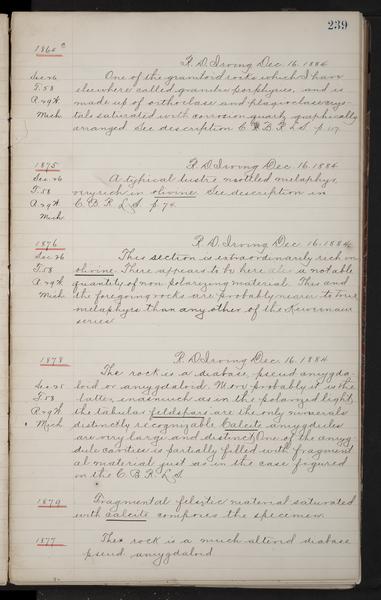 239
1865 a
R. D. Irving Dec. 16. 1884
Sec. 26 One of the granitoid rocks which I have
T. 58 elsewhere called granitic porphyries, and is
R. 29 W. made up of orthoclase and plagioclase crys-
Mich tals saturated with corrosion quartz graphically
arranged. See description C. B. R. L. S. p. 117.
1875
R. D. Irving Dec. 16. 1884
Sec. 26 A typical lustre mottled melaphyr,
T. 58 very rich in olivine. See description in
R. 29 W. C. B. R. L. S. p. 74.
Mich
1876
R. D. Irving Dec. 16. 1884
Sec. 26 This section is extraordinarily rich in
T. 58 olivine. There appears to be here also a notable
R. 29 W. quantity of non polarizing material. This and
Mich the foregoing rocks are probably nearer to true
melaphyrs than any other of the Keweenaw
series.
1878
R. D. Irving Dec. 16. 1884
The rock is a diabase, pseud amygda-
Sec. 25 loid or amygdaloid. More probably it is the
T. 58 latter, inasmuch as in the polarized light,
R. 29 W. the tabular feldspars are the only minerals
Mich distinctly recognizable. Calcite amygdules
are very large and distinct. One of the amyg
dule cavities is partially filled with fragment
al material just as in the case figured
in the C. B. R. L. S.
1879 Fragmental felsitic material saturated
with calcite composes the specimen.
1877 The rock is a much altered diabase
pseud amygdaloid